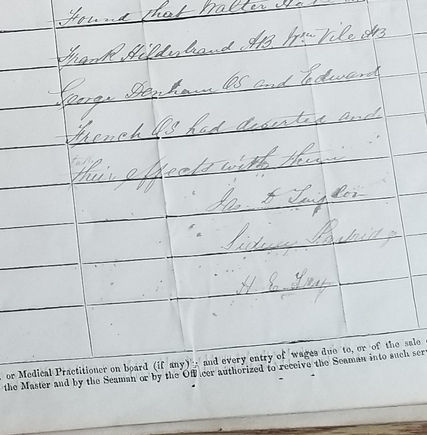 Found that Walter
Frank Hilderbrand AB Wm Vile AB
George Denham OS and Edward
French OS had deserted and
their effects with them
Jas D
Sidney
H E
or Medical Practitioner on board (if any); and every entry of wages due to, or of the sale
the Master and by the Seaman or by the Officer authorized to receive the Seaman into such